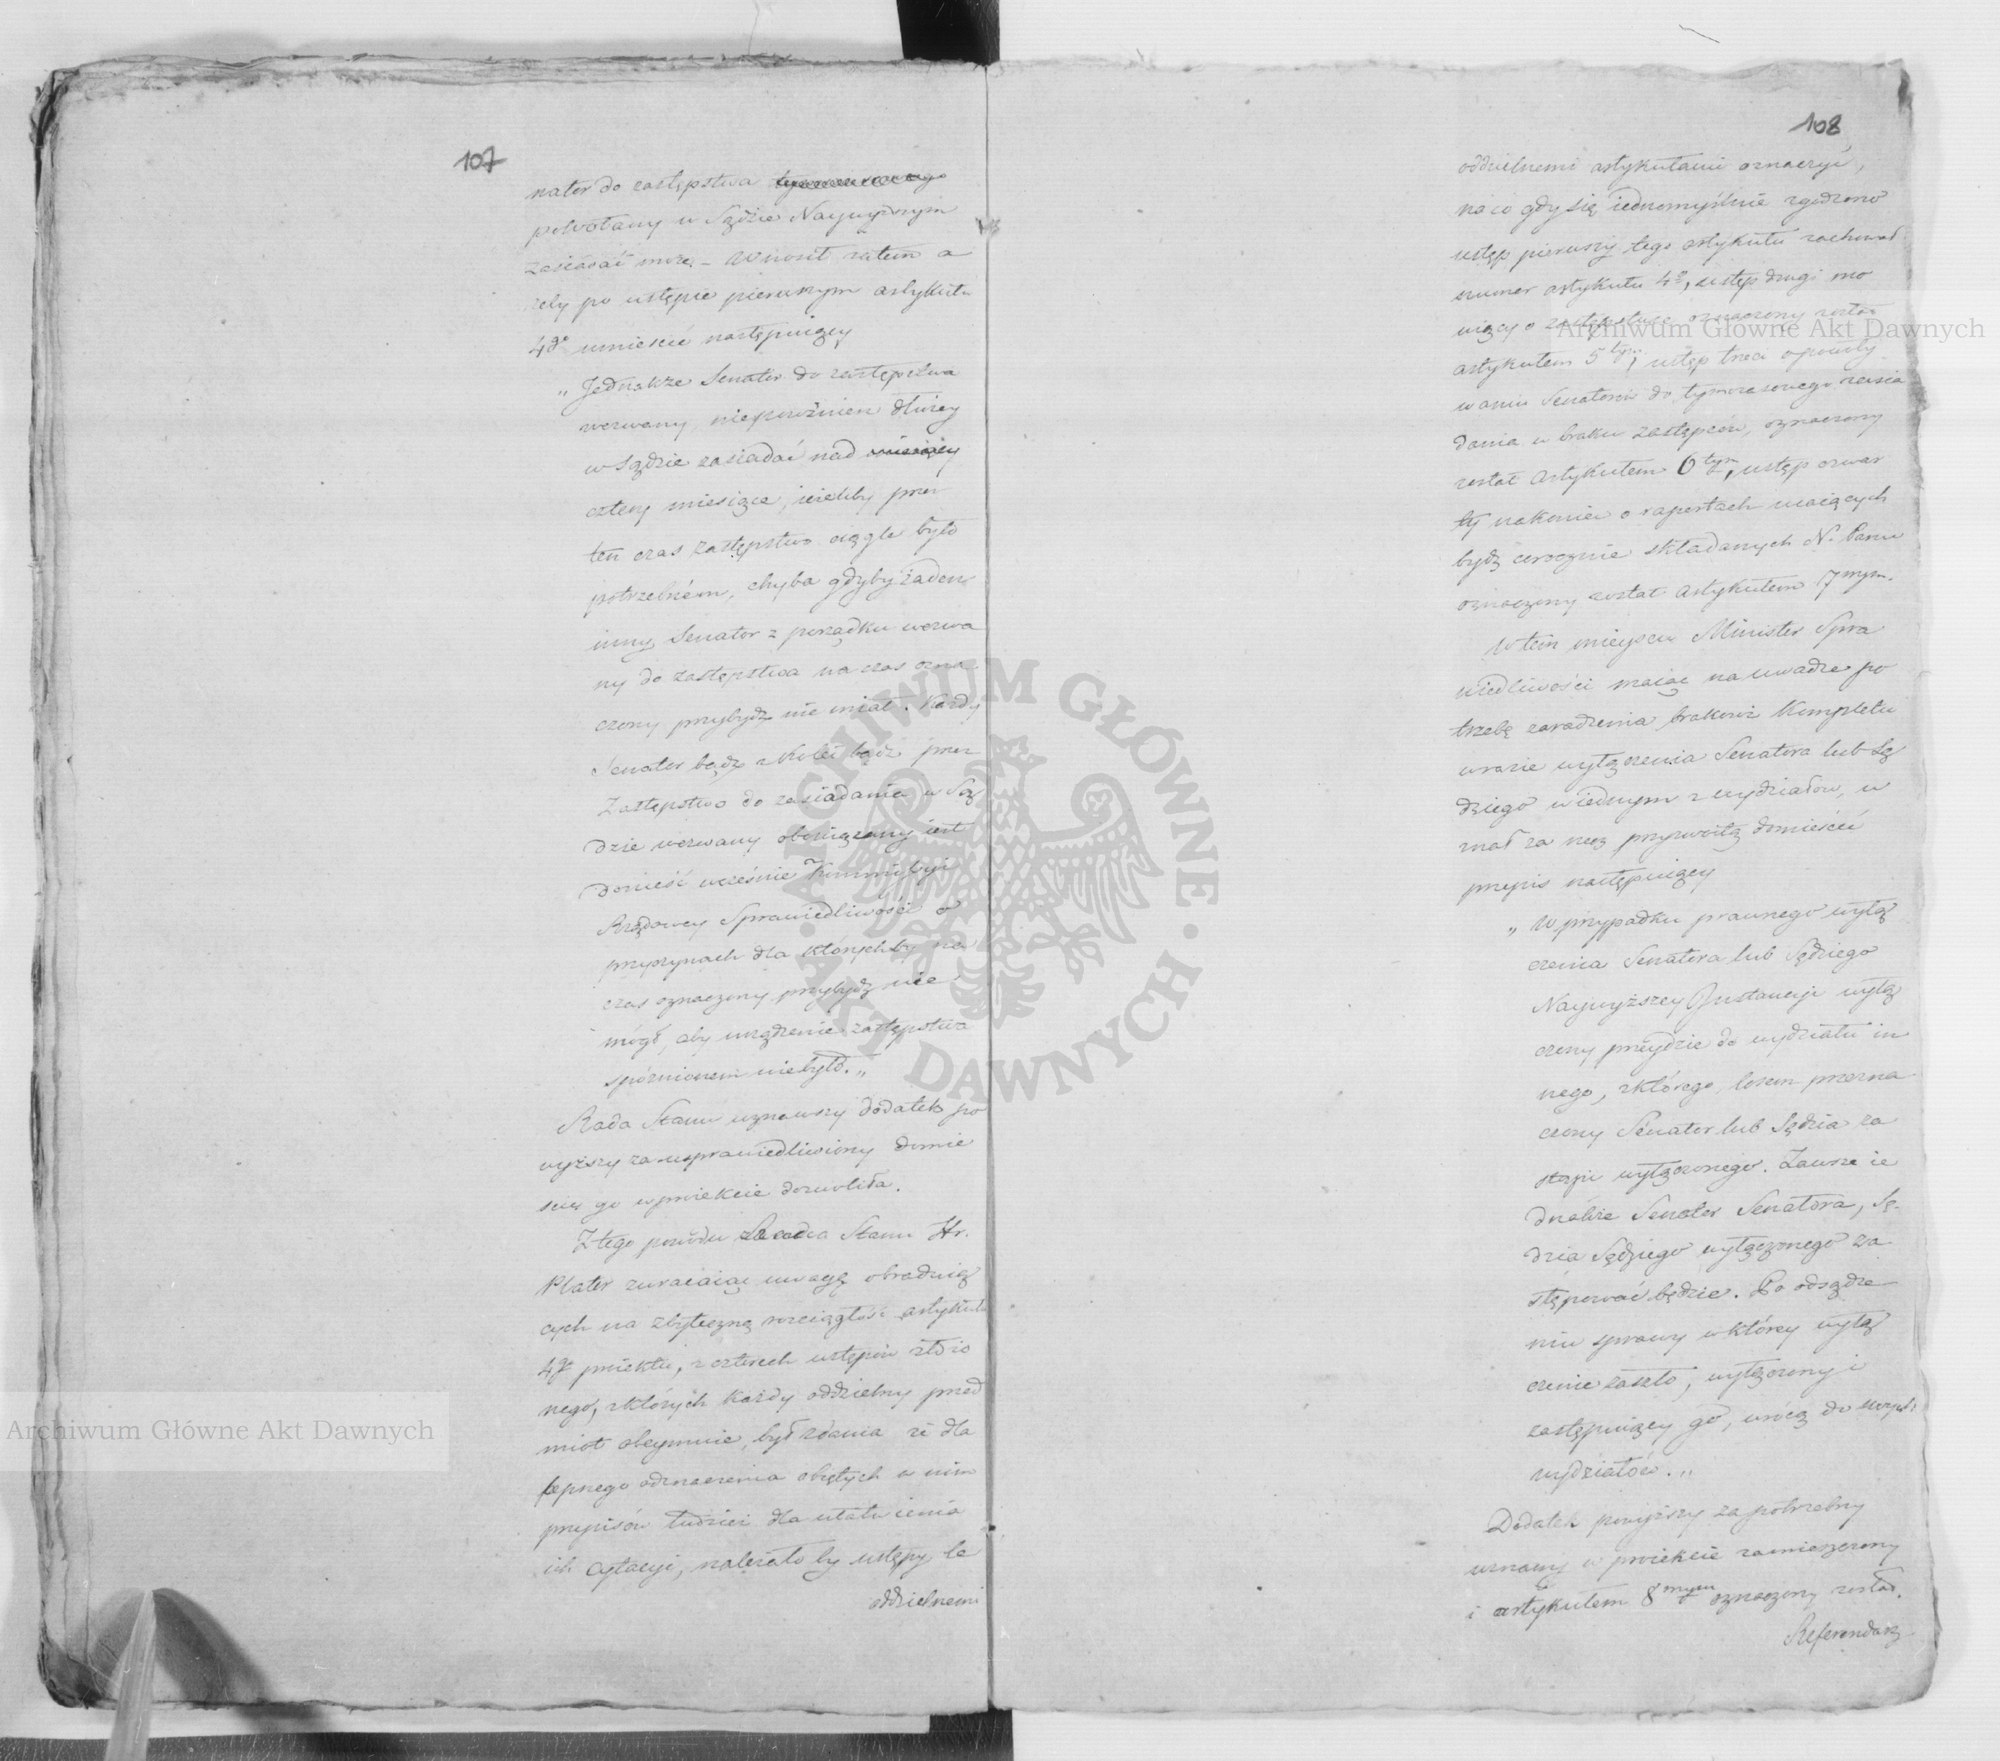 107
nator do zastępstwa
powołany w Sądzie Naywyższym
zasiadać może – wnosił zatem a
żeby po ustępie pierwszym artykułu
4go umieścić następuiący
„Jednakże Senator do zastępstwa
wezwany, niepowinien dłużey
w Sądzie zasiadać nad
cztery miesiące, ieżeliby przez
ten czas zastępstwo ciągle było
potrzebném, chyba gdyby żaden
inny Senator z porządku wezwa
ny do zastępstwa na czas ozna
czony przybydź nie miał. Każdy
Senator bądź z kolei bądź przez
Zastępstwo do zasiadania w Są
dzie wezwany obowiązany iest
donieść wcześnie Kommissyi
Rządowey Sprawiedliwości o
przyczynach dla którychby na
czas oznaczony przybydź nie
mógł, aby urządzenie zastępstwa
spóźnionem niebyło.„
Rada Stanu uznawszy dodatek po
wyższy za usprawiedliwiony domie
scić go w proiekcie dozwoliła.
Z tego powodu Radca Stanu Hr.
Plater zwracaiąc uwagę obraduią
cych na zbyteczną rozciągłość artykułu
4go proiektu, z czterech ustępów złożo
nego, z których każdy oddzielny przed
miot obeymuie, był zdania że dla
lepszego odznaczenia obiętych w nim
przepisów tudzież dla ułatwienia
ich cytacyi, należałoby ustępy te
oddzielnemi
108
oddzielnemi artykułami oznaczyć,
na co gdy się iednomyślnie zgodzono
ustęp pierwszy tego artykułu zachował
numer artykułu 4go, ustęp drugi mó
wiący o zastępstwie oznaczony został
artykułem 5tym, ustęp trzeci o powoły
waniu Senatorów do tymczasowego zasia
dania w braku zastępców, oznaczony
został Artykułem 6tym, ustęp czwar
ty nakoniec o raportach maiących
bydź corocznie składanych N. Panu
oznaczony został Artykułem 7mym.
W tem mieyscu Minister Spra
wiedliwości maiąc na uwadze po
trzebę zaradzenia brakowi Kompletu
w razie wyłączenia Senatora lub Sę
dziego w iednym z wydziałów, u
znał za rzecz przyzwoitą domieścić
przepis następuiący
„W przypadku prawnego wyłą
czenia Senatora lub Sędziego
Naywyższey Instancyi wyłą
czony przeydzie do wydziału in
nego, z którego, losem przezna
czony Senator lub Sędzia za
stąpi wyłączonego. Zawsze ie
dnakże Senator Senatora, Sę-
dzia Sędziego wyłączonego za
stępować będzie. Po odsądze
niu sprawy w którey wyłą
czenie zaszło, wyłączony i
zastępuiący go, wrócą do swych
wydziałów.„
Dodatek powyższy za potrzebny
uznany w proiekcie zamieszczony
i artykułem 8mym oznaczony został.
Referendarz
Archiwum Główne Akt Dawnych
Archiwum Główne Akt Dawnych
ARCHIWUM GŁÓWNE · AKT DAWNYCH ·